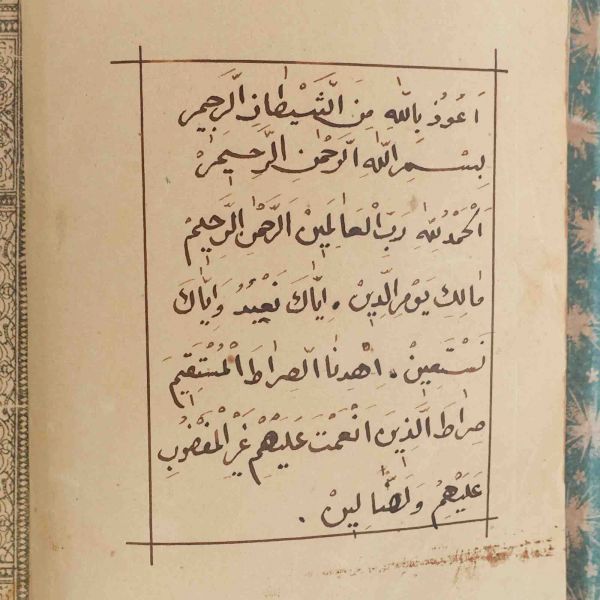 اَعُوذُ بِاللّٰهِ مِنَ الشَّيْطَانِ الرَّجِيمِ
بِسْمِ اللّٰهِ الرَّحْمٰنِ الرَّحِيمِ
اَلْحَمْدُ لِلّٰهِ رَبِّ الْعَالَمِينْ اَلرَّحْمٰنِ الرَّحِيمْ
مَالِكِ يَوْمِ الدِّينْ . اِيَّاكَ نَعْبُدُ وَاِيَّاكَ
نَسْتَعِينْ . اِهْدِنَا الصِّرَاطَ الْمُسْتَقِيمَ
صِرَاطَ الَّذِينَ اَنْعَمْتَ عَلَيْهِمْ غَيْرِ الْمَغْضُوبِ
عَلَيْهِمْ وَلَضَّالِينْ .